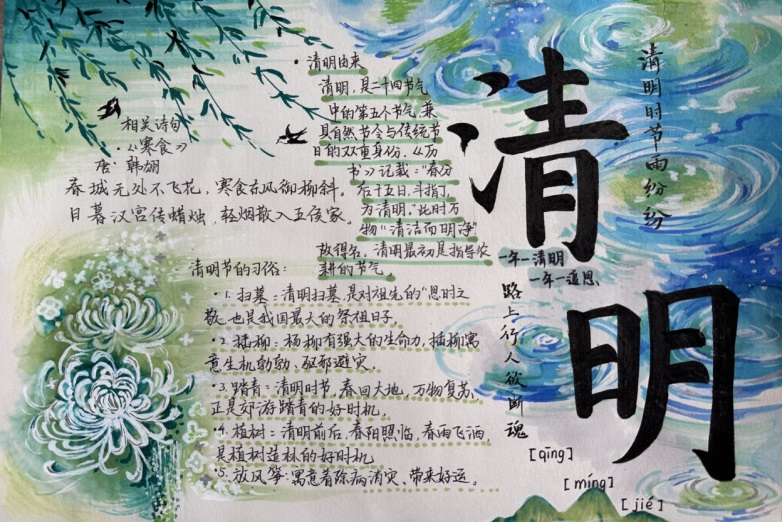 清明
清明时节雨纷纷
一年一清明
一年一追思
路上行人欲断魂
[qīng]
[míng]
[jié]
• 清明由来
清明，是二十四节气
中的第五个节气，兼
具自然节令与传统节
日的双重身份。《历
书》记载：“春分
后十五日，斗指丁，
为清明。”此时万
物“清洁而明净”
故得名。清明最初是指导农
耕的节气。
相关诗句
•《寒食》
唐·韩翃
春城无处不飞花，寒食东风御柳斜。
日暮汉宫传蜡烛，轻烟散入五侯家。
清明节的习俗：
•1. 扫墓：清明扫墓，是对祖先的“思时之
敬，也是我国最大的祭祖日子。
•2. 插柳：杨柳有强大的生命力，插柳寓
意生机勃勃、驱邪避灾。
•3. 踏青：清明时节，春回大地，万物复苏，
正是郊游踏青的好时机。
•4. 植树：清明前后，春阳照临，春雨飞洒，
是植树造林的好时机
•5. 放风筝：寓意着除病消灾、带来好运。